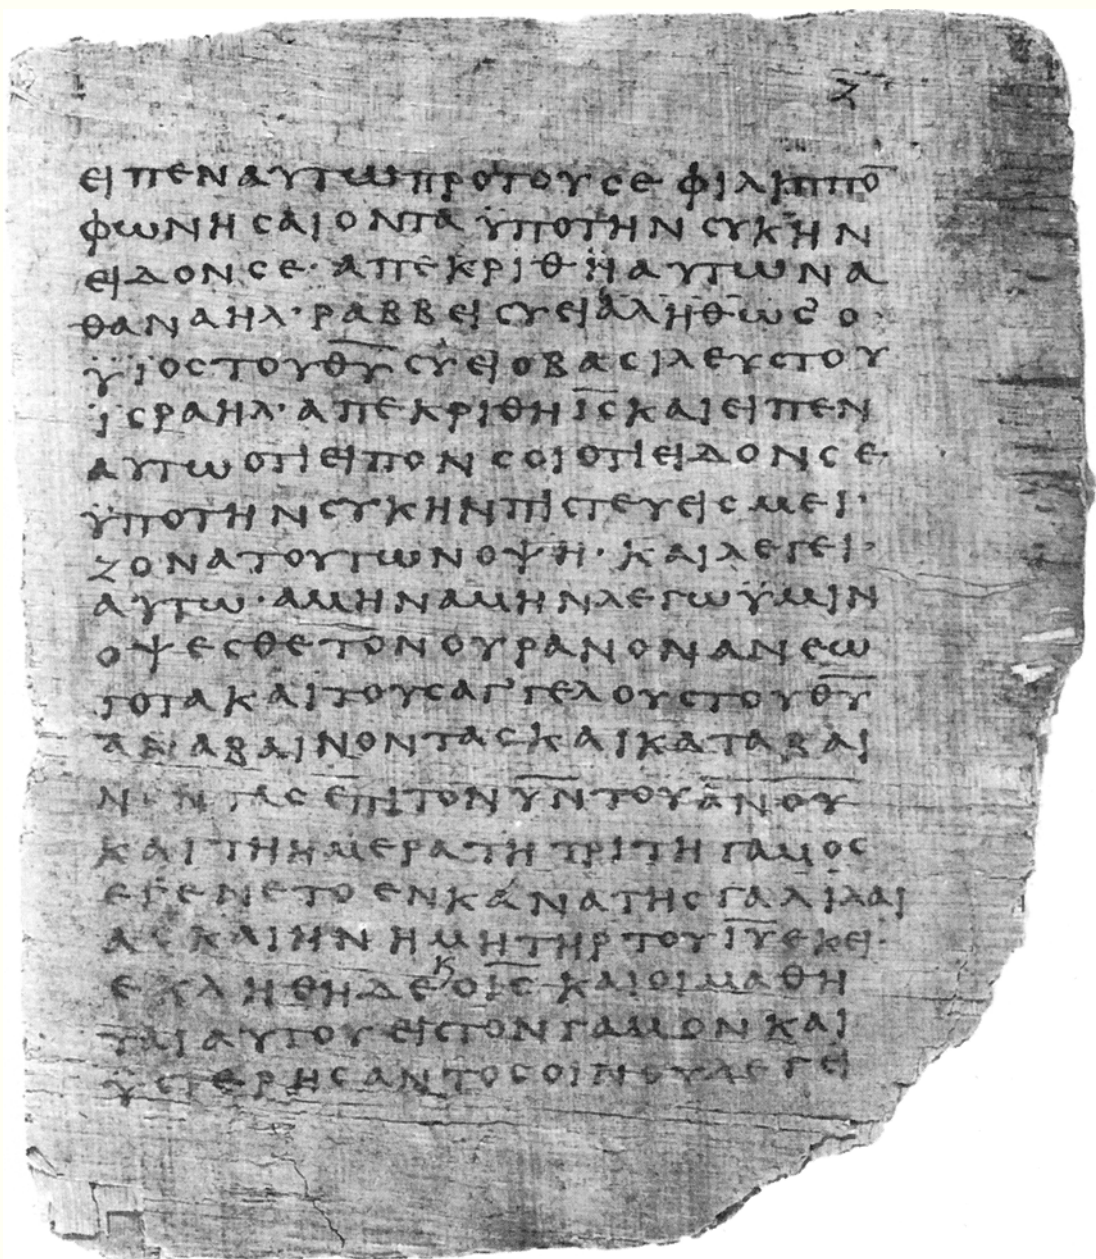 ζ̅
ειπεναυτωπροτουσεφιλιππο̅
φωνησαιονταϋποτηνσυκην
ειδονσε· απεκριθηαυτωνα
θαναηλ· ραββεισυειαληθωσο·
ϋϊοστουθ̅υ̅συειοβασιλευστου
ϊσραηλ· απεκριθηι̅σ̅καιειπεν
αυτωοτιειπονσοιοτιειδονσε·
ϋποτηνσυκηνπιστευεισμει·
ζονατουτωνοψη· καιλεγει·
αυτω· αμηναμηνλεγωϋμιν
οψεσθετονουρανονανεω
γοτακαιτουσαγ᾽γελουστουθ̅υ̅
αναβαινοντασκαικαταβαι
νοντασεπιτονυ̅ν̅τουα̅ν̅ο̅υ̅
καιτηημερατητριτηγαμοσ
εγενετοενκανατησγαλιλαι
ασκαιηνημητηρτουι̅υ̅εκει·
εκληθηδεκοι̅σ̅καιοιμαθη
ταιαυτουειστονγαμονκαι
ϋστερησαντοσοινουλεγει